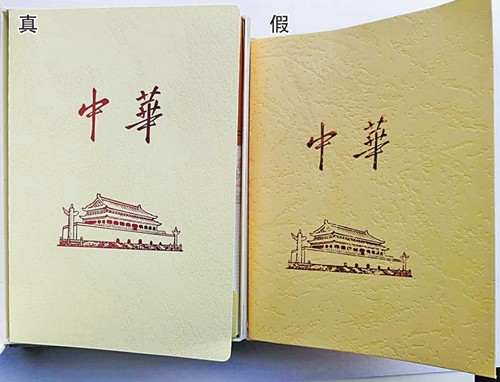 真
假
中華
中華